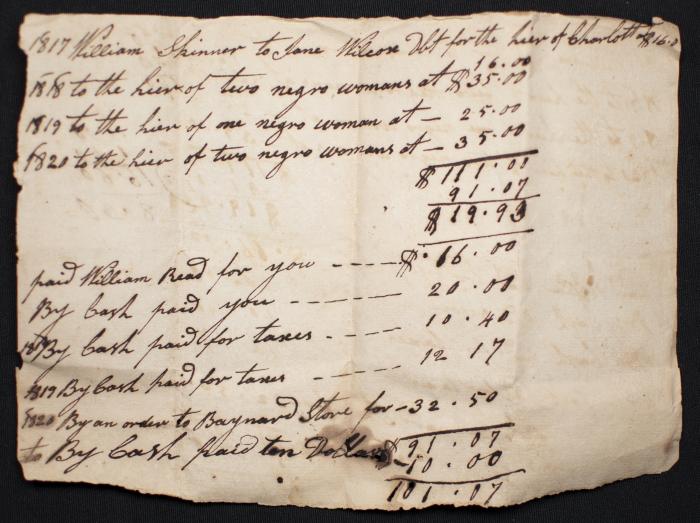 1817 William Skinner to Jane Wilcox Dbt for the hier of Charlott $16.0
16.00
1818 to the hier of two negro womans at $35.00
1819 to the hier of one negro woman at - 25.00
1820 to the hier of two negro womans at - 35.00
$111.00
91.07
$19.93
paid William Read for you ---- $.16.00
By Cash paid you ------ 20.00
By Cash paid for taxes ---- 10.40
1819 By Cash paid for taxes ---- 12 17
1820 By an order to Baynard Store for - 32.50
$91.07
to By Cash paid ten Dollars - 10.00
101.07